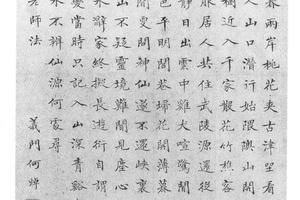 春兩岸桃花夾古津坐看
人山口潛行始隈隩山開
樹近入千家散花竹樵客
服居人共住武陵源還從
靜日出雲中雞犬喧驚聞
閭巷掃花開薄暮
間更聞神仙遂不還峽裏
山不疑靈境難聞見塵心
水辭家終擬長遊衍自謂
變當時只記入山深青溪
水不辨仙源何處尋
老師法 義門何焯